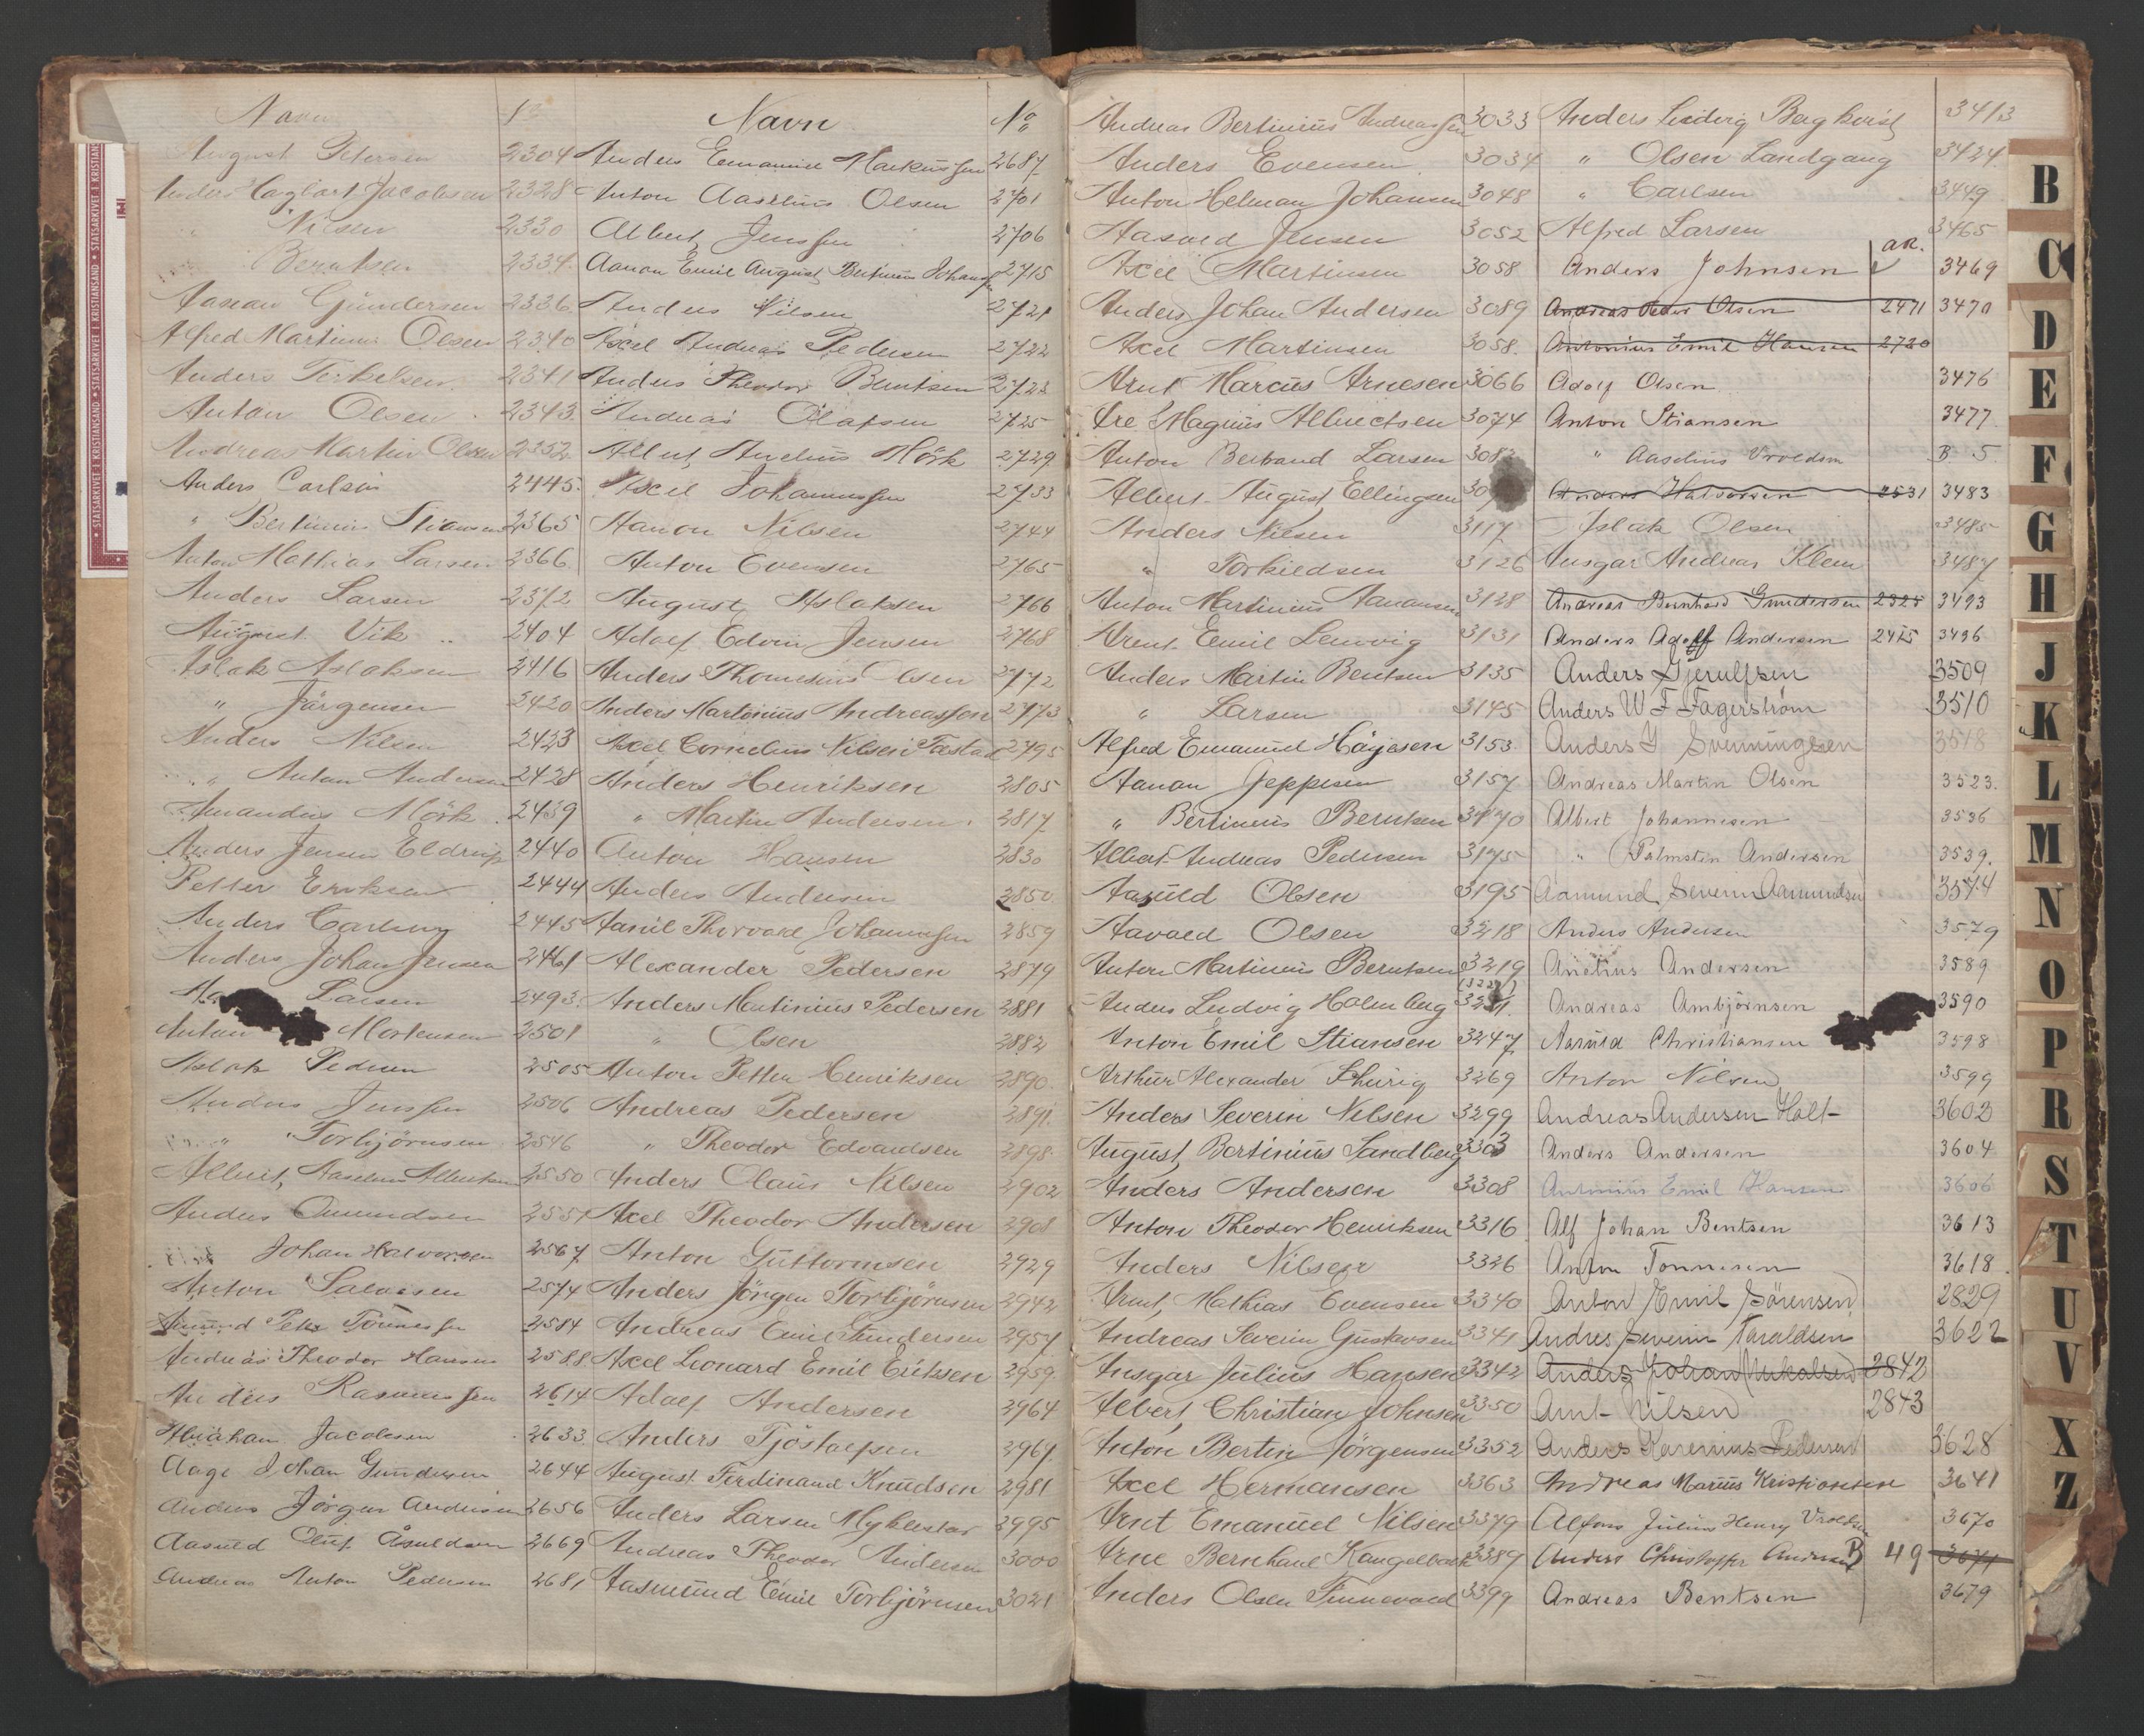 Navn No
August Petersen 2304
Anders Hagbart Jacobsen 2328
" Nilsen 2330
" Berntsen 2334
Aanon Gundersen 2336
Alfred Martinius Olsen 2340
Anders Terkelsen 2341
Anton Olsen 2343
Andreas Martin Olsen 2352
Anders Carlsen 2445
" Bertinius Stiansen 2365
Anton Mathias Larsen 2366
Anders Larsen 2372
August Vik 2404
Aslak Aslaksen 2416
" Jørgensen 2420
Anders Nilsen 2423
" Anton Andersen 2428
Amandus Mørk 2439
Anders Jensen Eldrup 2440
Petter Eriksen 2444
Anders Carlsen 2445
Anders Johan Jensen 2461
Larsen 2493
Anton Mortensen 2501
Aslak Pedersen 2505
Anders Jenssen 2506
" Torbjørnsen 2546
Albert Aaselius Albertsen 2550
Anders Omundsen 2551
" Johan Halvorsen 2567
Anton Salvesen 2574
Amund Peter Tønnessen 2584
Andreas Theodor Hansen 2588
Anders Rasmussen 2614
Abraham Jacobsen 2633
Aage Johan Gundersen 2644
Anders Jörgen Andersen 2656
Aasuld Oluf Åsuldsen 2669
Andreas Anton Pedersen 2681
Navn No
Anders Emanuel Markussen 2687
Anton Aaselius Olsen 2701
Albert Jenssen 2706
Aanon Emil August Bertinius Johansen 2715
Anders Nilsen 2721
Axel Andreas Pedersen 2722
Anders Theodor Berntsen 2723
Andreas Olafsen 2725
Albert Andreas Mörk 2729
Axel Johannessen 2733
Aanon Nilsen 2744
Anton Evensen 2765
August Aslaksen 2766
Adolf Edvin Jensen 2768
Anders Thomesius Olsen 2772
Anders Martinius Andreassen 2773
Axel Cornelius Nilsen Tastad 2795
Anders Henriksen 2805
" Martin Andersen 2817
Anton Hansen 2830
Anders Andersen 2850
Aanil Thorvald Johannessen 2859
Alexander Pedersen 2879
Anders Martinius Pedersen 2881
" Olsen 2882
Anton Petter Henriksen 2890
Andreas Pedersen 2891
" Theodor Edvardsen 2898
Anders Olaus Nilsen 2902
Axel Theodor Andersen 2908
Anton Guttormsen 2929
Anders Jörgen Torbjörnsen 2942
Andreas Emil Gundersen 2957
Axel Leonard Emil Eriksen 2959
Adolf Andersen 2964
Anders Tjöstolfsen 2967
August Ferdinand Knudsen 2981
Anders Larsen Myklestad 2995
Andreas Theodor Andersen 3000
Aasmund Emil Torbjörnsen 3021
Andreas Bertinius Andreassen 3033
Anders Evensen 3034
Anton Helman Johansen 3048
Aasvald Jensen 3052
Axel Martinsen 3058
Anders Johan Andersen 3089
Axel Martinsen 3058
Arnt Marcus Arnesen 3066
Are Magnus Albrectsen 3074
Anton Bertrand Larsen 308
Albert August Ellingsen 30
Anders Nilsen 3117
" Torkildsen 3126
Anton Martinius Aanonsen 3128
Arent Emil Lervig 3131
Anders Martin Bentsen 3135
" Larsen 3145
Alfred Emanuel Höyesen 3153
Aanon Jeppesen 3157
" Bertinius Berntsen 3170
Albert Andreas Pedersen 3175
Aasuld Olsen 3195
Aavald Olsen 3218
Anton Martinius Berntsen 3219
Anders Ludvig Holmberg 3221
Anton Emil Stiansen 3247
Arthur Alexander Schürig 3269
Anders Severin Nilsen 3299
August Bertinius Sandberg 3303
Anders Andersen 3308
Anton Theodor Henriksen 3316
Anders Nilsen 3326
Arnt Mathias Evensen 3340
Andreas Severin Gustavsen 3341
Ansgar Julius Hansen 3342
Albert Christian Johnsen 3350
Anton Bertin Jörgensen 3352
Axel Hermansen 3363
Arnt Emanuel Nilsen 3379
Arne Bernhard Kaugelbach 3389
Anders Olsen Finnevold 3399
Anders Ludvig Bagkvist 3413
" Olsen Landgang 3424
" Carlsen 3449
Alfred Larsen 3465
Anders Johnsen aR. 3469
Andreas Peder Olsen 2471 3470
Antonius Emil Hansen 2720
Adolf Olsen 3476
Anton Stiansen 3477
" Aaselius Vroldsen B 5
Anders Halvorsen 2531 3483
Islak Olsen 3485
Ansgar Andreas Klem 3487
Andreas Bernhard Gundersen 2325 3493
Anders Adolf Andersen 2475 3496
Anders Gjerulfsen 3509
Anders W F Fagerström 3510
Anders Y Svenningsen 3518
Andreas Martin Olsen 3523
Albert Johannesen 3536
" Palmstin Andersen 3539
Aamund Severin Aamundsen 3574
Anders Andersen 3579
Anetius Andersen 3589
Andreas Ambjörnsen 3590
Aasuld Christiansen 3598
Anton Nilsen 3599
Andreas Andersen Holt 3602
Anders Andersen 3604
Antonius Emil Hansen 3606
Alf Johan Bentsen 3613
Anton Tonnesen 3618
Anton Emil Sörensen 2829
Andres Severin Taraldsen 3622
Anders Johan 2842
Arnt Nilsen 2843
Anders Karenius Pedersen 3628
Andreas Marius Kristiansen 3641
Alfons Julius Henry Vroldsen 3670
Anders Christoffer Andersen B 49 3674
Andreas Bentsen 3679
B
C
D
E
F
G
H
J
K
L
M
N
O
P
R
S
T
U
V
X
Z
STATSARKIVET I KRISTIANSAND